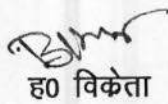 ह0 विकेता